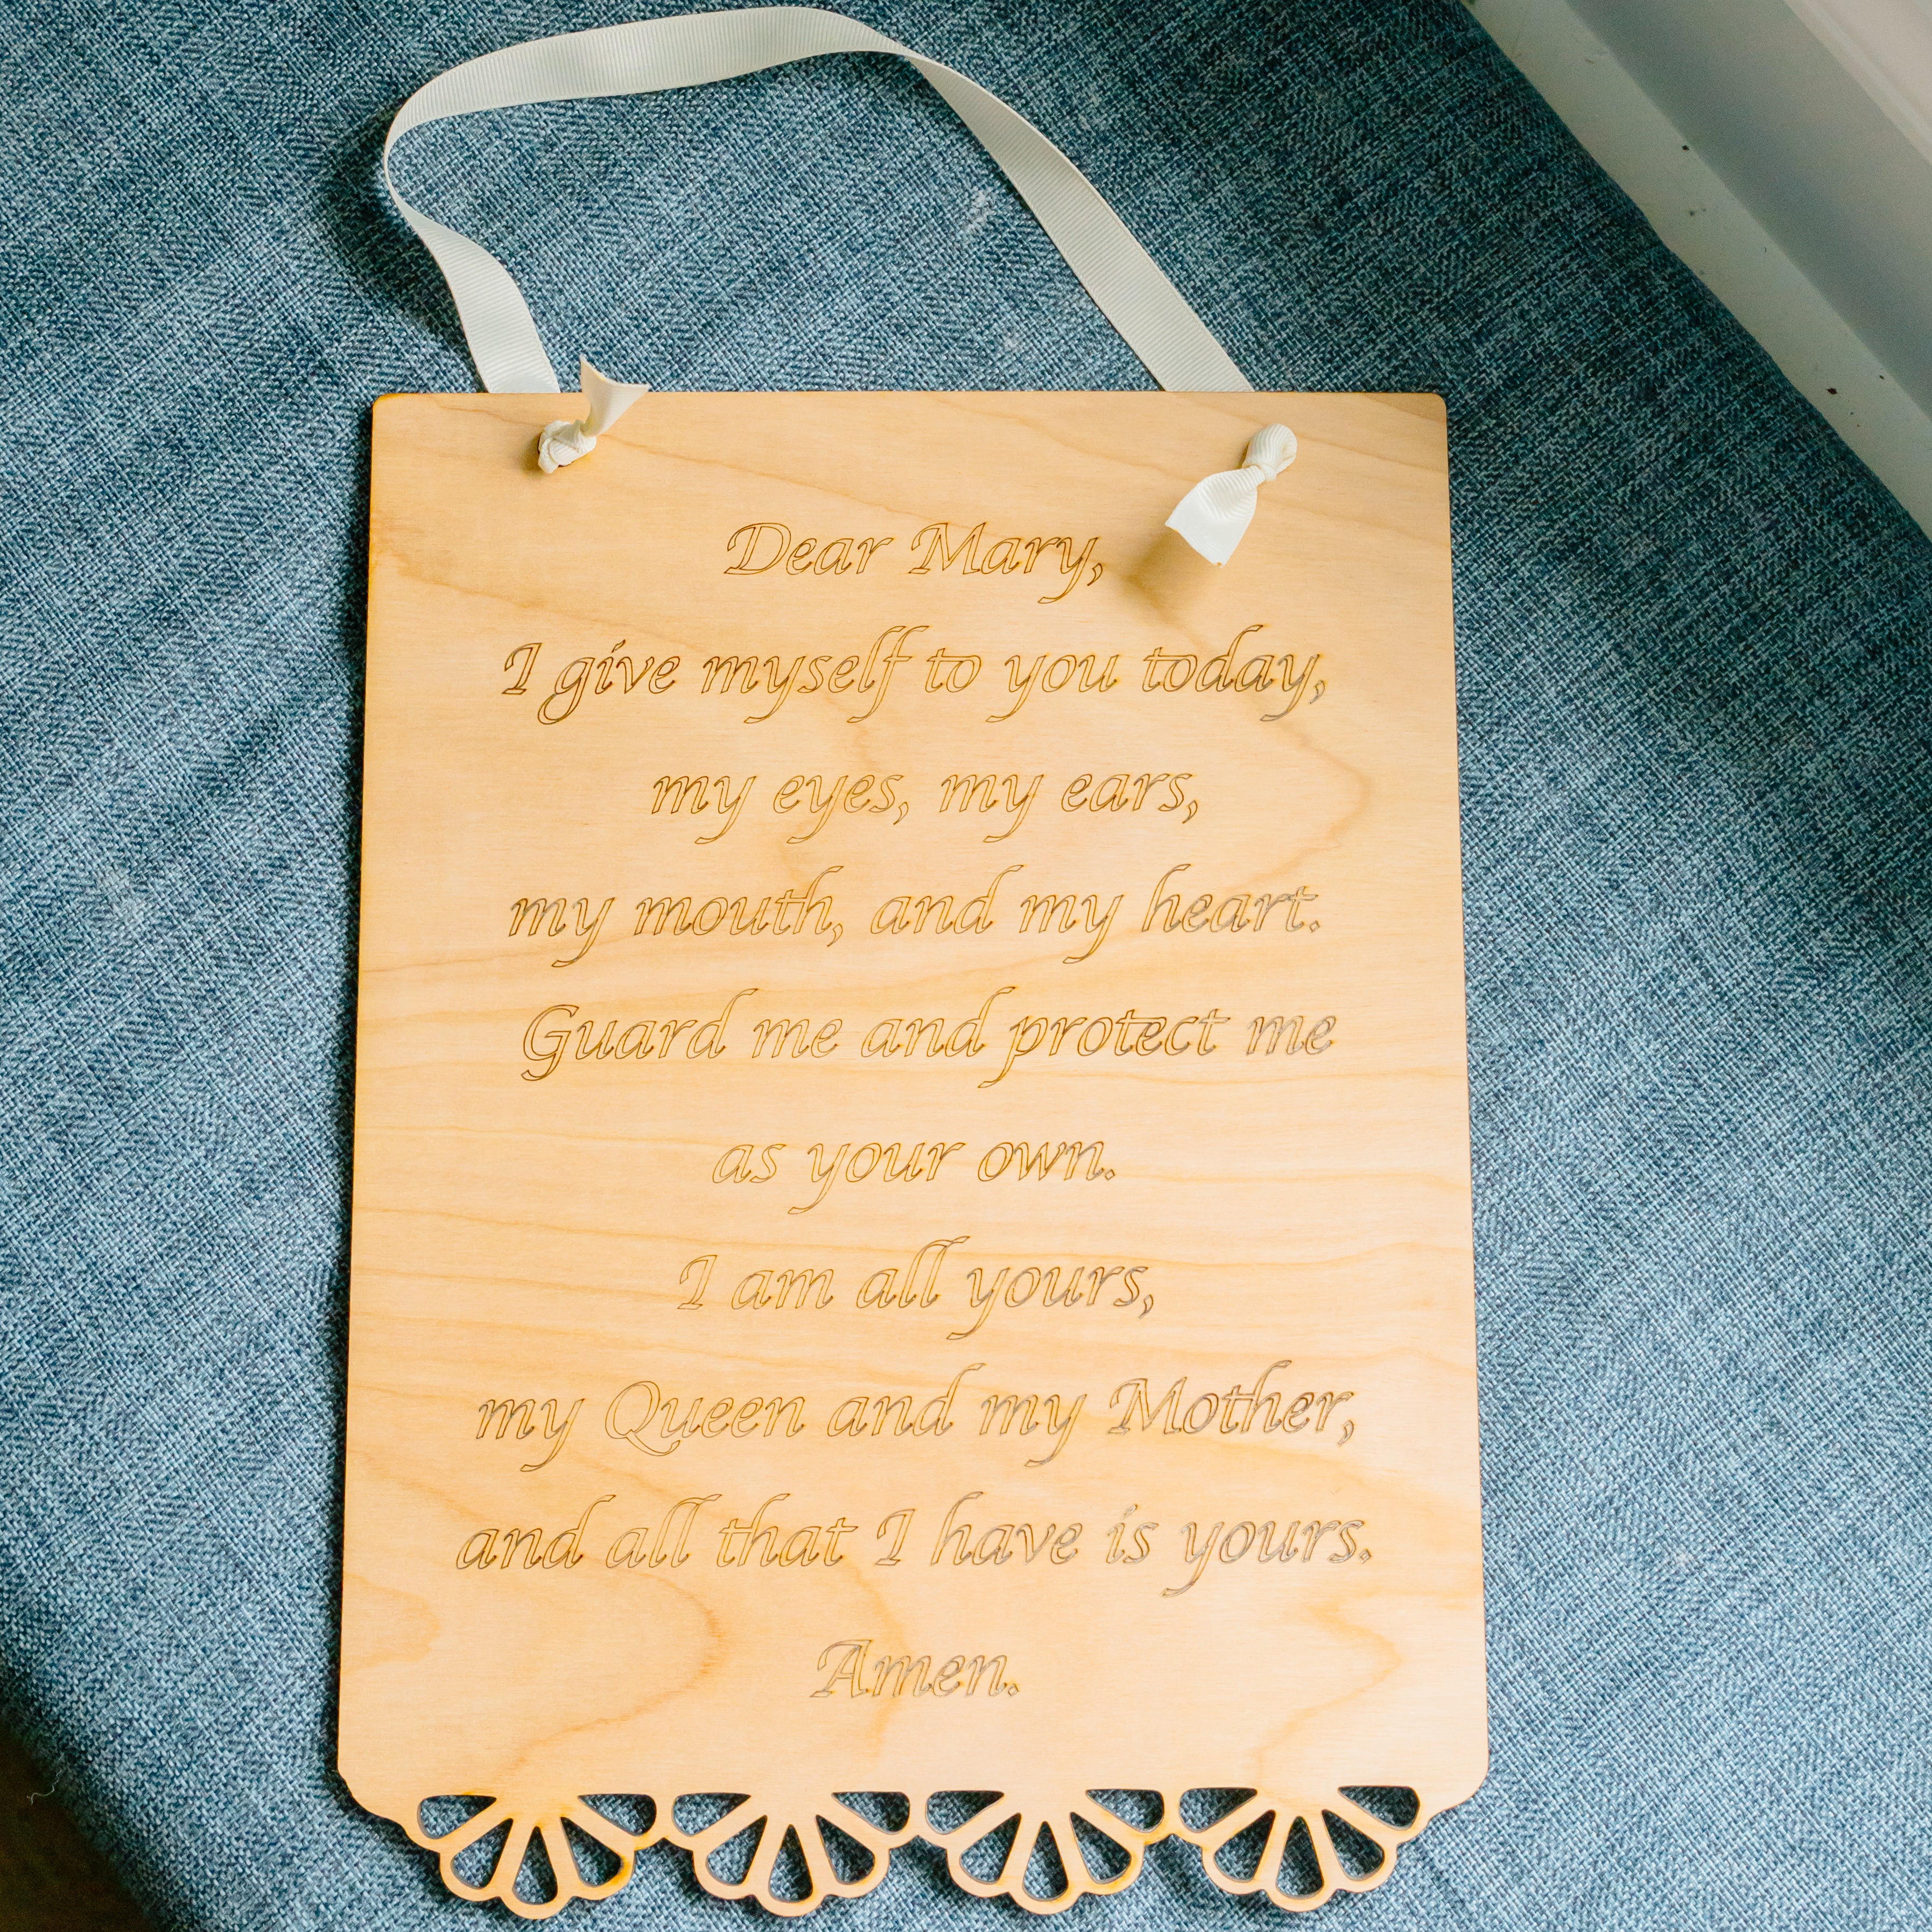 Dear Mary,
I give myself to you today,
my eyes, my ears,
my mouth, and my heart.
Guard me and protect me
as your own.
I am all yours,
my Queen and my Mother,
and all that I have is yours.
Amen.